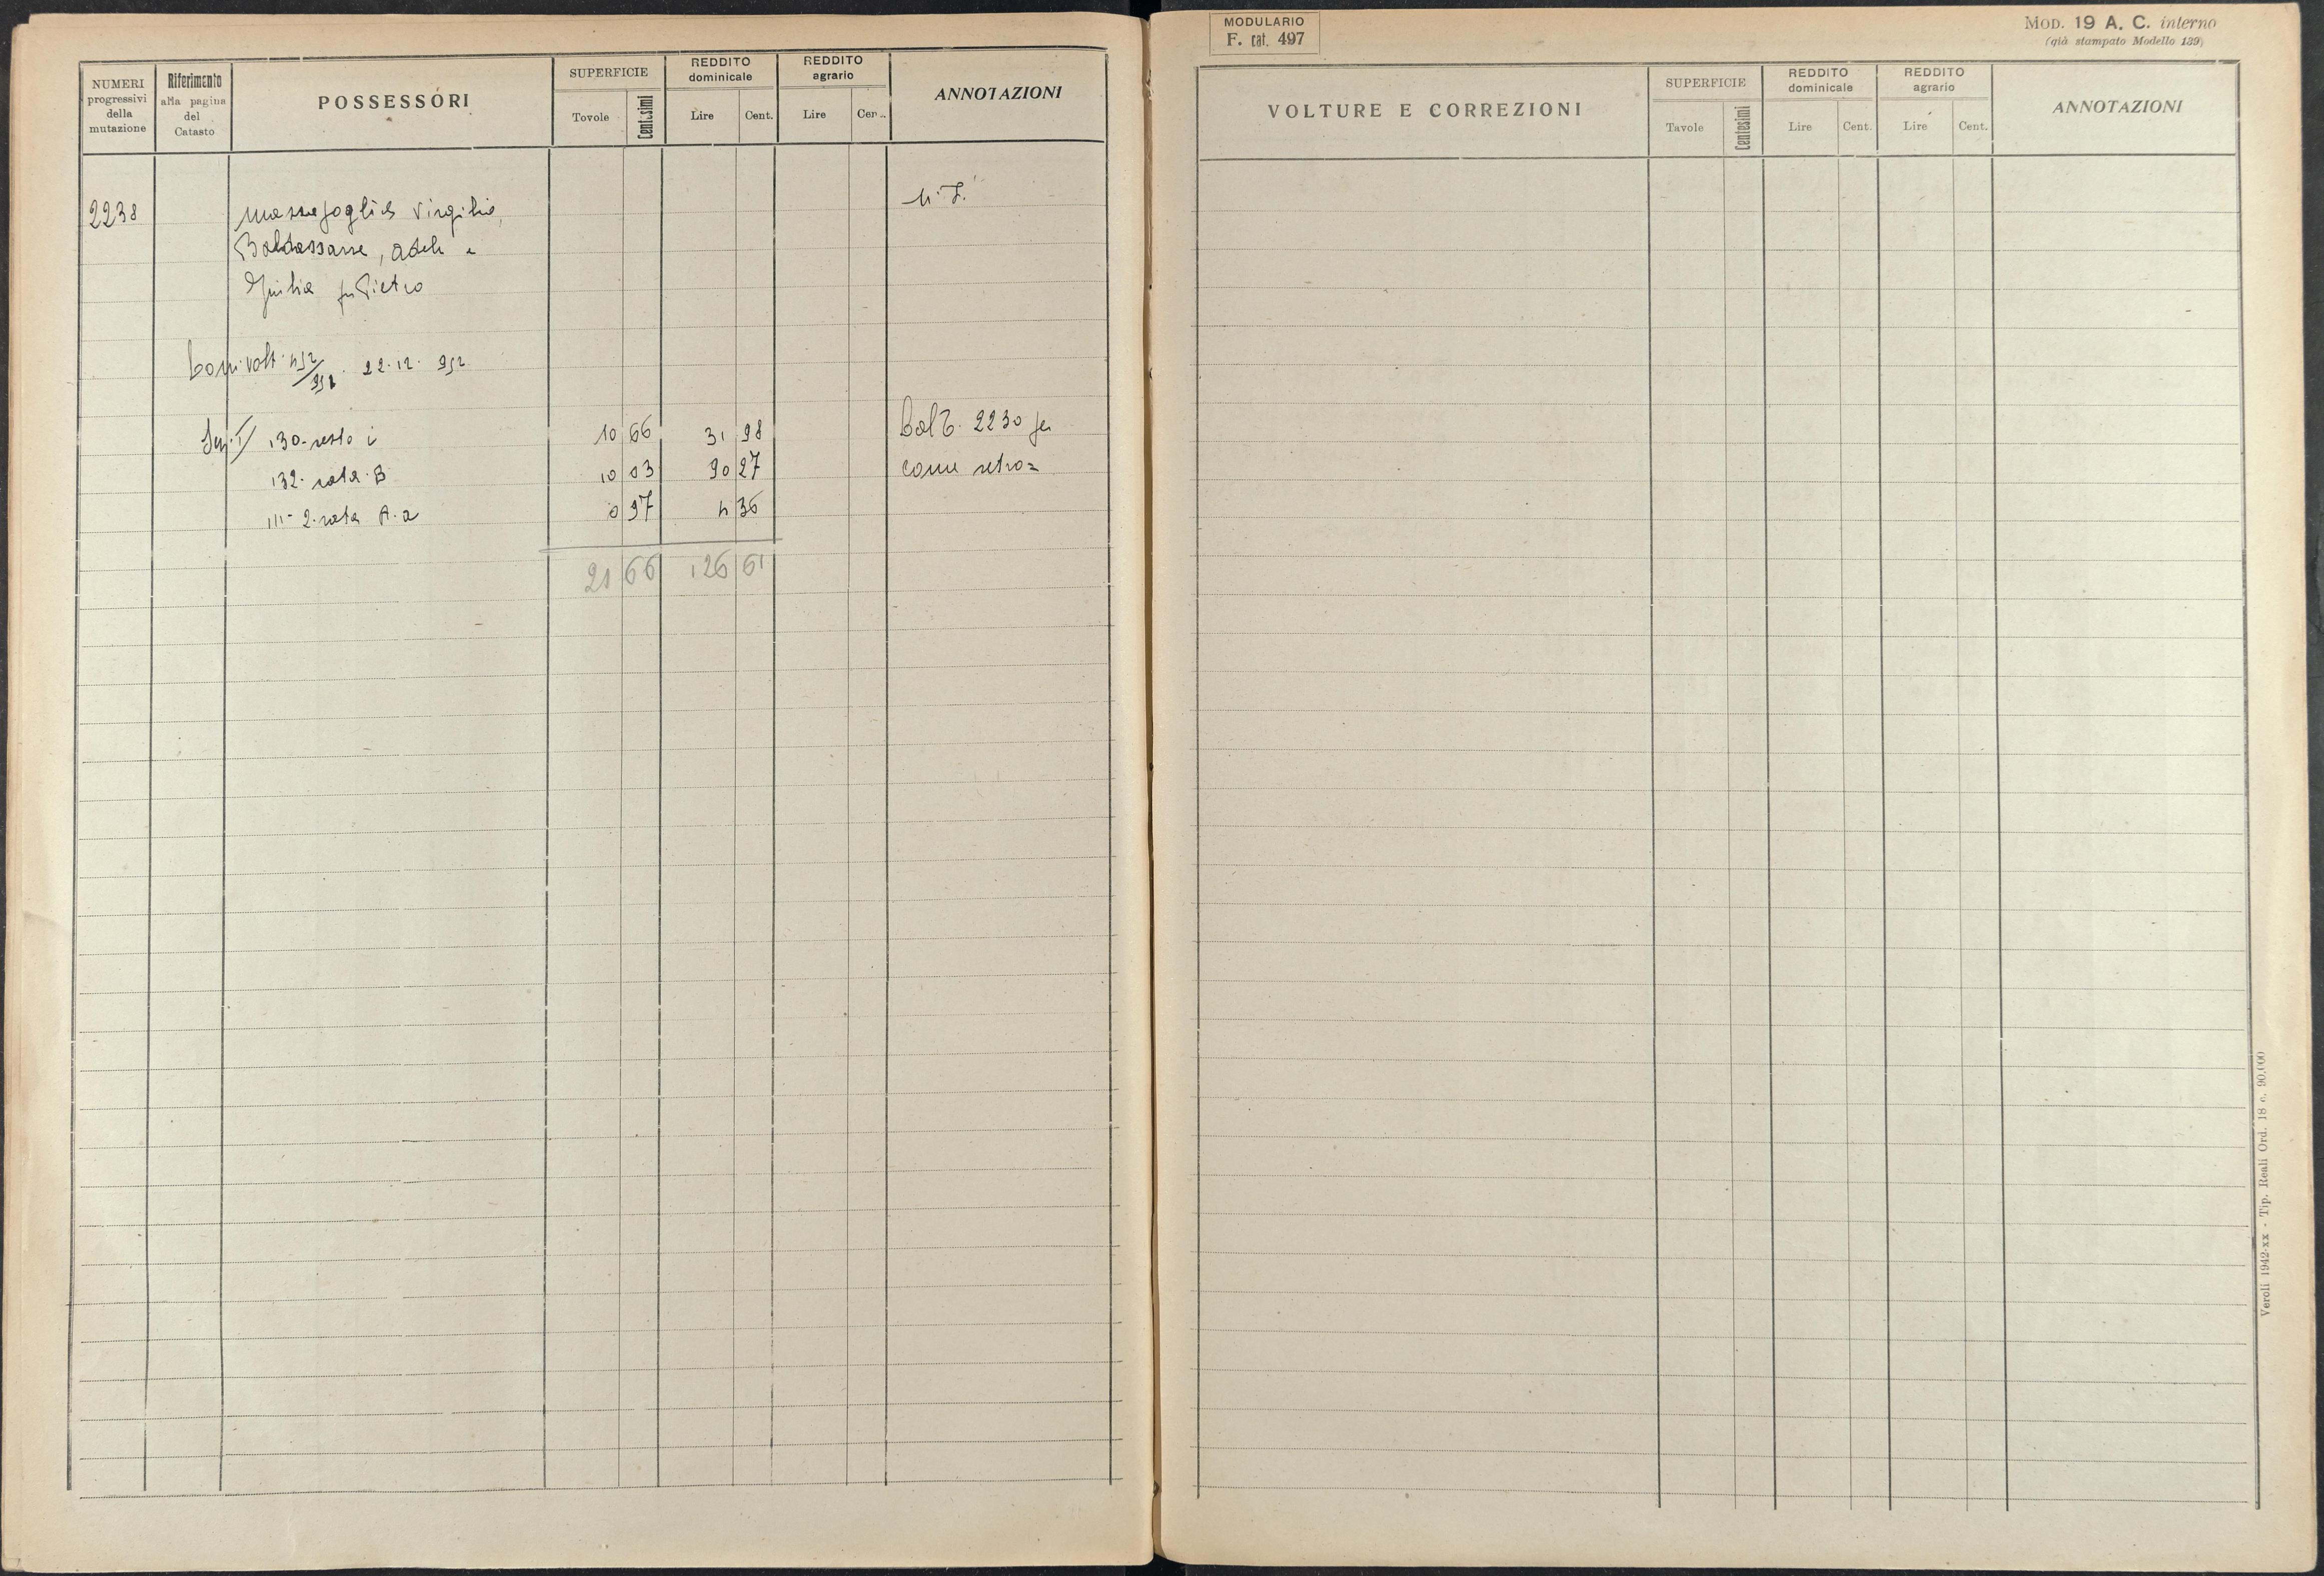 NUMERI
progressivi
della
mutazione
Riferimento
alla pagina
del
Catasto
POSSESSORI
SUPERFICIE
Tavole
Centesimi
REDDITO
dominicale
Lire
Cent.
REDDITO
agrario
Lire
Cen..
ANNOTAZIONI
2238
Massafoglia Virgilio,
Baldassarre, Adele e
Giulia fu Pietro
N. I.
volt. 22.12.952
Sez. I/ 130. resto i 10 66 31 98 2230 per
132. rata. B 10 03 90 27 come retro=
III- 2. rata A. a 0 97 4 36
21 66 126 61
MODULARIO
F. cat. 497
MOD. 19 A. C. interno
(già stampato Modello 139)
VOLTURE E CORREZIONI
SUPERFICIE
Tavole
Centesimi
REDDITO
dominicale
Lire
Cent.
REDDITO
agrario
Lire
Cent.
ANNOTAZIONI
Veroli 1942-xx - Tip. Reali Ord. 18 c. 90.000